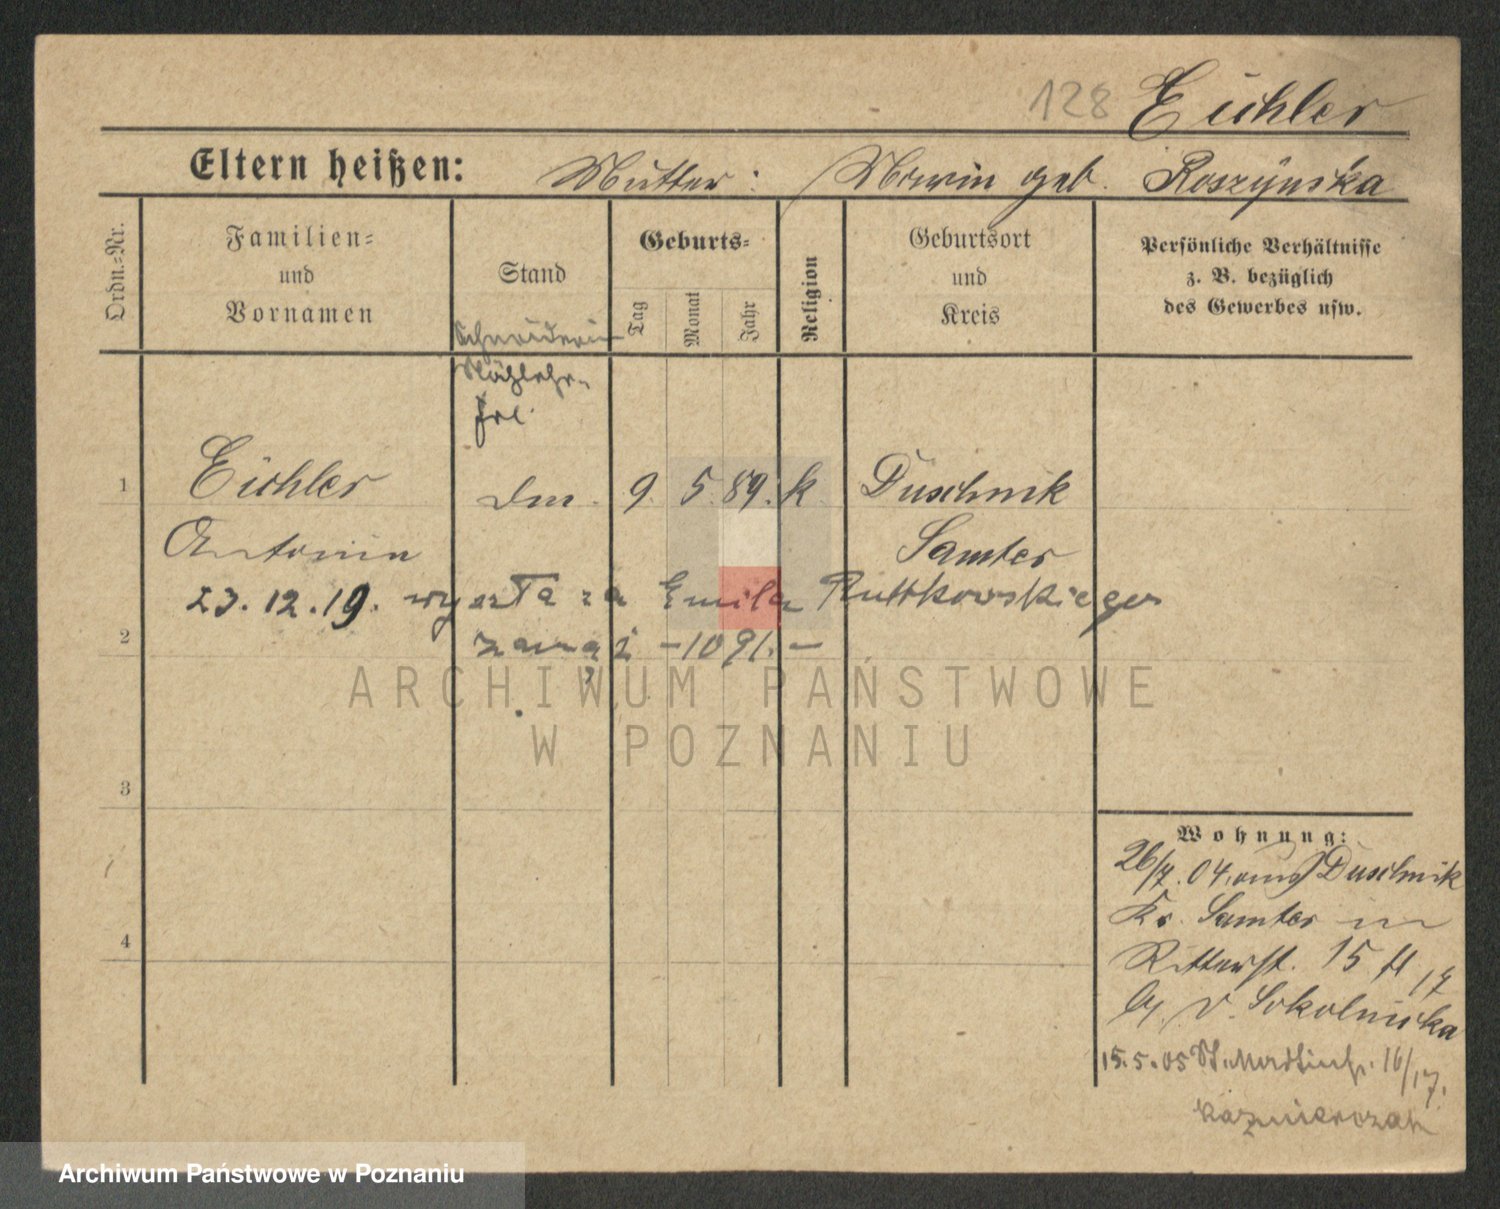 128 Eichler
Eltern heißen: Mutter: Marie geb. Roszynska
Ordn.-Nr.
Familien-
und
Vornamen
Stand
Geburts-
Tag
Monat
Jahr
Religion
Geburtsort
und
Kreis
Persönliche Verhältnisse
z. B. bezüglich
des Gewerbes usw.
Schneiderin
Frl.
1 Eichler 9. 5. 89. k Duschnik
Antonie Samter
23.12.19. wyszła za Emila Ruttkowskiego
2 zamąż -1091.-
ARCHIWUM PAŃSTWOWE
W POZNANIU
3
4
Wohnung:
26/7. 04. aus Duschnik
Kr. Samter in
Ritterst. 15
b. v. Sokolnicka
15.5.05 St. Martinstr. 16/17.
Kazmierczak
Archiwum Państwowe w Poznaniu